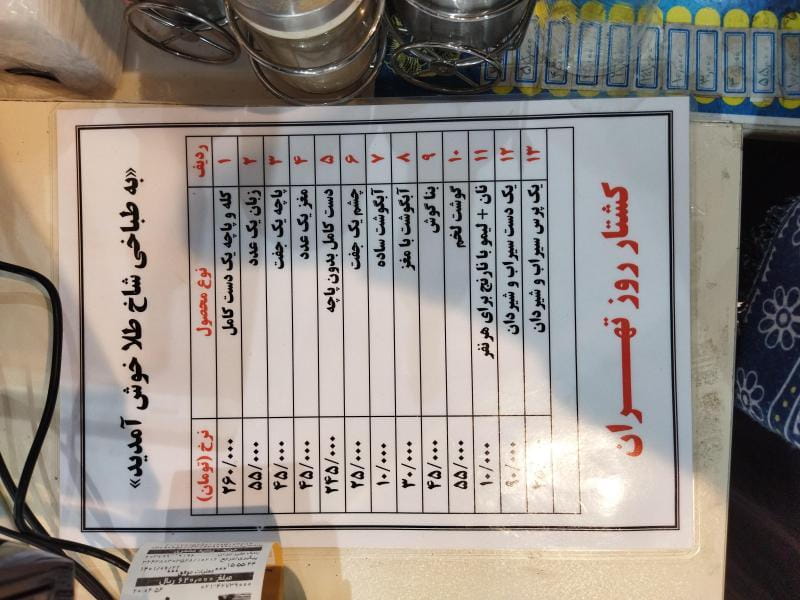 «به طباخی شاخ طلا خوش آمدید»
ردیف نوع محصول نرخ (تومان)
۱ کله و پاچه یک دست کامل ۲۶۰/۰۰۰
۲ زبان یک عدد ۵۵/۰۰۰
۳ پاچه یک جفت ۴۵/۰۰۰
۴ مغز یک عدد ۴۵/۰۰۰
۵ دست کامل بدون پاچه ۲۴۵/۰۰۰
۶ چشم یک جفت ۲۵/۰۰۰
۷ آبگوشت ساده ۱۰/۰۰۰
۸ آبگوشت با مغز ۳۰/۰۰۰
۹ بنا گوش ۴۵/۰۰۰
۱۰ گوشت لخم ۵۵/۰۰۰
۱۱ نان + لیمو یا نارنج برای هر نفر ۱۰/۰۰۰
۱۲ یک دست سیراب و شیردان ۹۰/۰۰۰
۱۳ یک پرس سیراب و شیردان
کشتار روز تهـــران
مبلغ ۶۲۰,۰۰۰ ریال